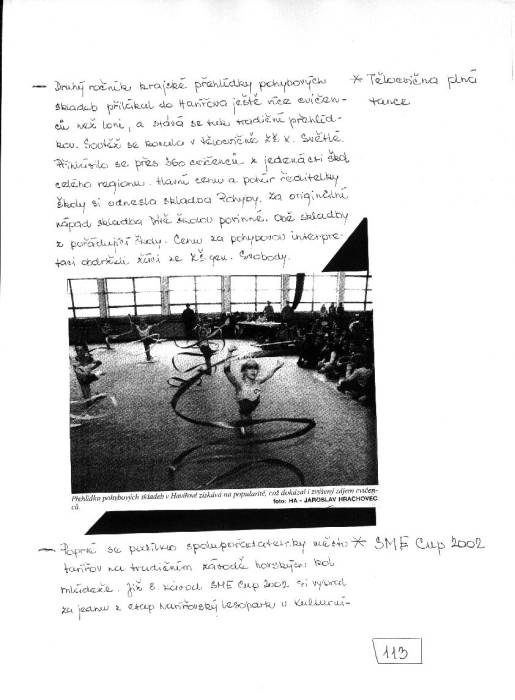 — Druhý ročník krajské přehlídky pohybových
skladeb přilákal do Havířova ještě více cvičen-
ců než loni, a stává se tak tradiční přehlíd-
kou. Soutěž se konala v tělocvičně ZŠ K. Světlé.
Přihlásilo se přes 360 cvičenců z jedenácti škol
celého regionu. Hlavní cenu a pohár ředitelky
školy si odnesla skladba Pohyby, za originální
nápad skladba Dítě školou povinné. Obě skladby
z pořádající školy. Cenu za pohybovou interpre-
taci obdrželi žáci ze ZŠ gen. Svobody.
* Tělocvična plná
tance
Přehlídka pohybových skladeb v Havířově získává na popularitě, což dokázal i zvýšený zájem cvičen-
ců.
foto: HA - JAROSLAV HRACHOVEC
— Poprvé se podílelo spolupořadatelsky město
Havířov na tradičním závodě horských kol
mládeže. Již 8. závod SME Cup 2002 si vybral
za jednu z etap Havířovský lesopark u Kulturní-
* SME Cup 2002
113